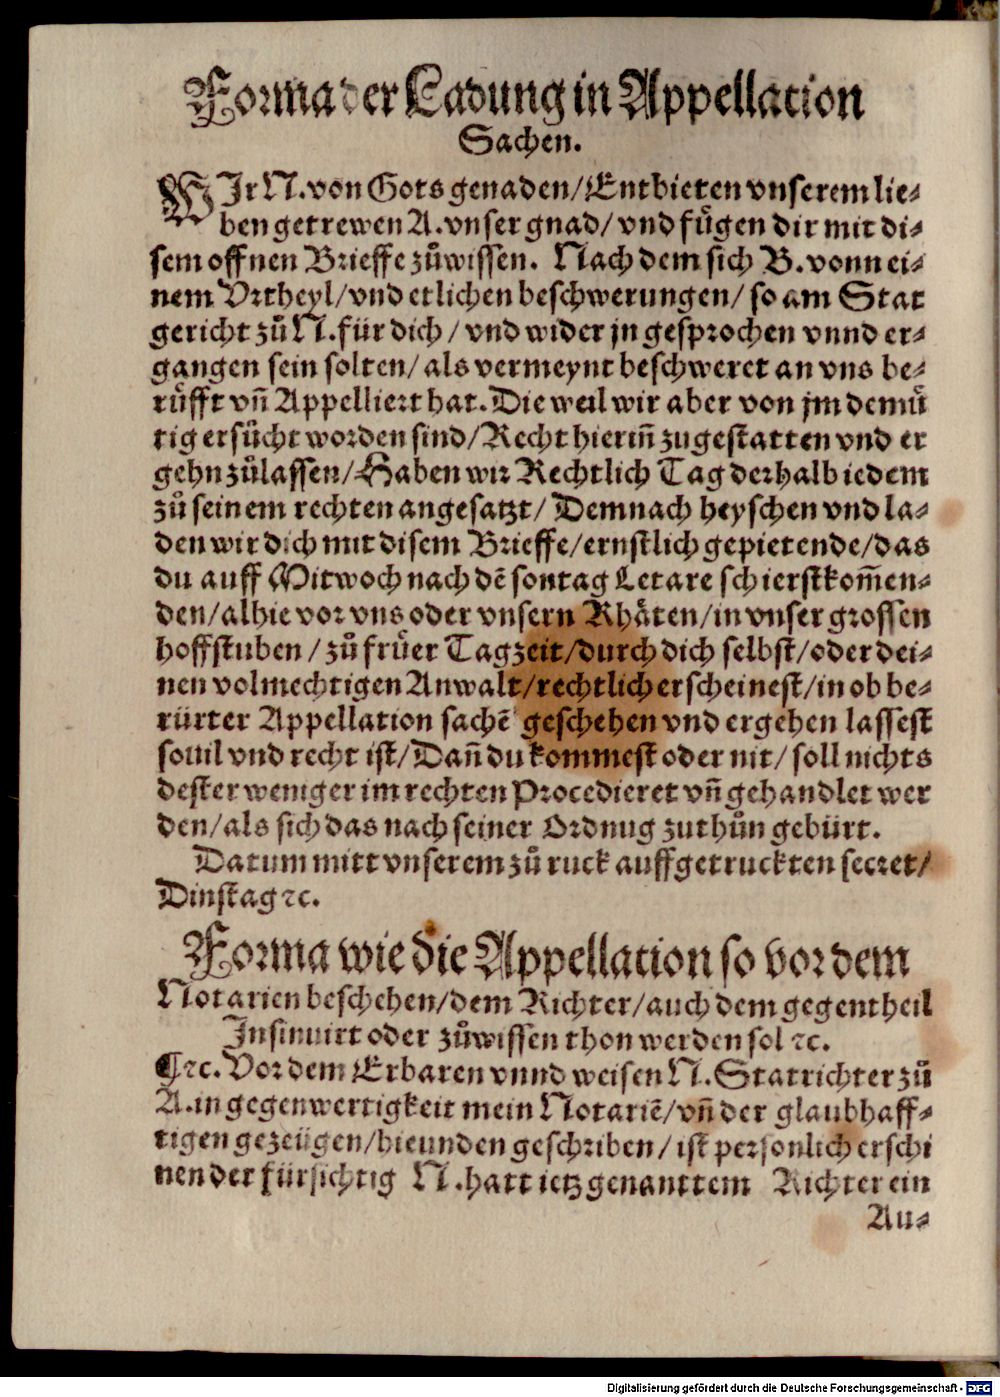 Forma der Ladung in Appellation
Sachen.
WJr N. von Gots genaden/ Entbieten vnserem lie-
ben getrewen A. vnser gnad/ vnd fuͤgen dir mit di-
sem offnen Brieffe zuͦwissen. Nach dem sich B. vonn ei-
nem Vrtheyl/ vnd etlichen beschwerungen/ so am Stat
gericht zuͦ N. für dich/ vnd wider jn gesprochen vnnd er-
gangen sein solten/ als vermeynt beschweret an vns be-
ruͤfft vñ Appelliert hat. Die weil wir aber von jm demuͤ
tig ersuͤcht worden sind/ Recht hieriñ zugestatten vnd er
gehn zuͦlassen/ Haben wir Rechtlich Tag derhalb iedem
zuͦ seinem rechten angesatzt/ Demnach heyschen vnd la-
den wir dich mit disem Brieffe/ ernstlich gepietende/ das
du auff Mitwoch nach dē sontag Letare schierstkom̄en-
den/ alhie vor vns oder vnsern Rhaͤten/ in vnser grossen
hoffstuben/ zuͦ fruͤer Tagzeit/ durch dich selbst/ oder dei-
nen volmechtigen Anwalt/ rechtlich erscheinest/ in ob be-
rürter Appellation sachē geschehen vnd ergehen lassest
souil vnd recht ist/ Dañ du kommest oder nit/ soll nichts
dester weniger im rechten Procedieret vñ gehandlet wer
den/ als sich das nach seiner Ordnug zuthuͦn gebürt.
Datum mitt vnserem zuͦ ruck auffgetruckten secret/
Dinstag ꝛc.
Forma wie die Appellation so vor dem
Notarien beschehen/ dem Richter/ auch dem gegentheil
Insinuirt oder zuͦwissen thon werden sol ꝛc.
¶ ꝛc. Vor dem Erbaren vnnd weisen N. Statrichter zuͦ
A. in gegenwertigkeit mein Notariē/ vñ der glaubhaff-
tigen gezeügen/ hieunden geschriben/ ist personlich erschi
nen der fürsichtig N. hatt ietz genanttem Richter ein
Au-
Digitalisierung gefördert durch die Deutsche Forschungsgemeinschaft - DFG